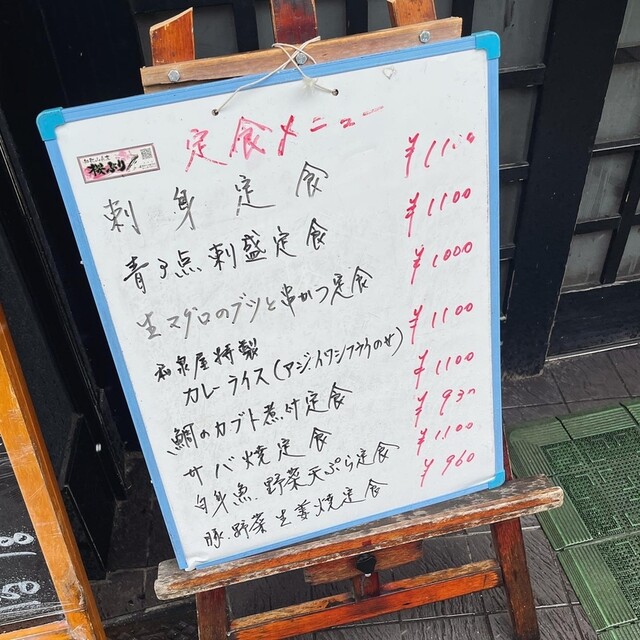 定食メニュー
刺身定食 ¥1100
青子点刺盛定食 ¥1100
生マグロのブツと串かつ定食 ¥1000
和泉屋特製
カレーライス(アジ、イワシフライのせ) ¥1100
鯛のカブト煮付定食 ¥1100
サバ焼定食 ¥930
白身魚、野菜天ぷら定食 ¥1100
豚、野菜生姜焼定食 ¥960